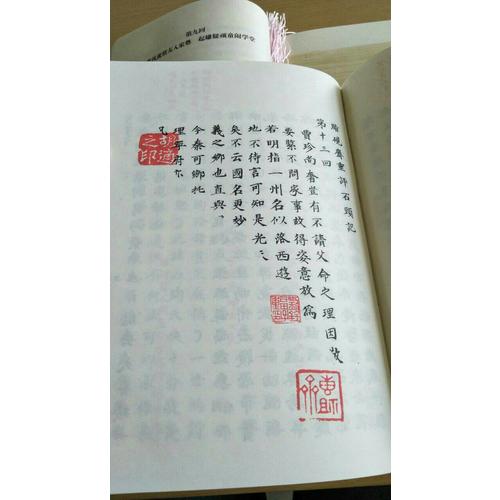 第九回
起嫌疑顽童闹学堂
脂硯齋重評石頭記
第十三回
賈珍尚奢豈有不請父命之理因敬
要緊不問家事故得姿意放爲
若明指一州名似落西遊
地不待言可知是光天
矣不云國名更妙
義之鄉也直與
今秦可卿托
理寧府亦
凡
胡適之印